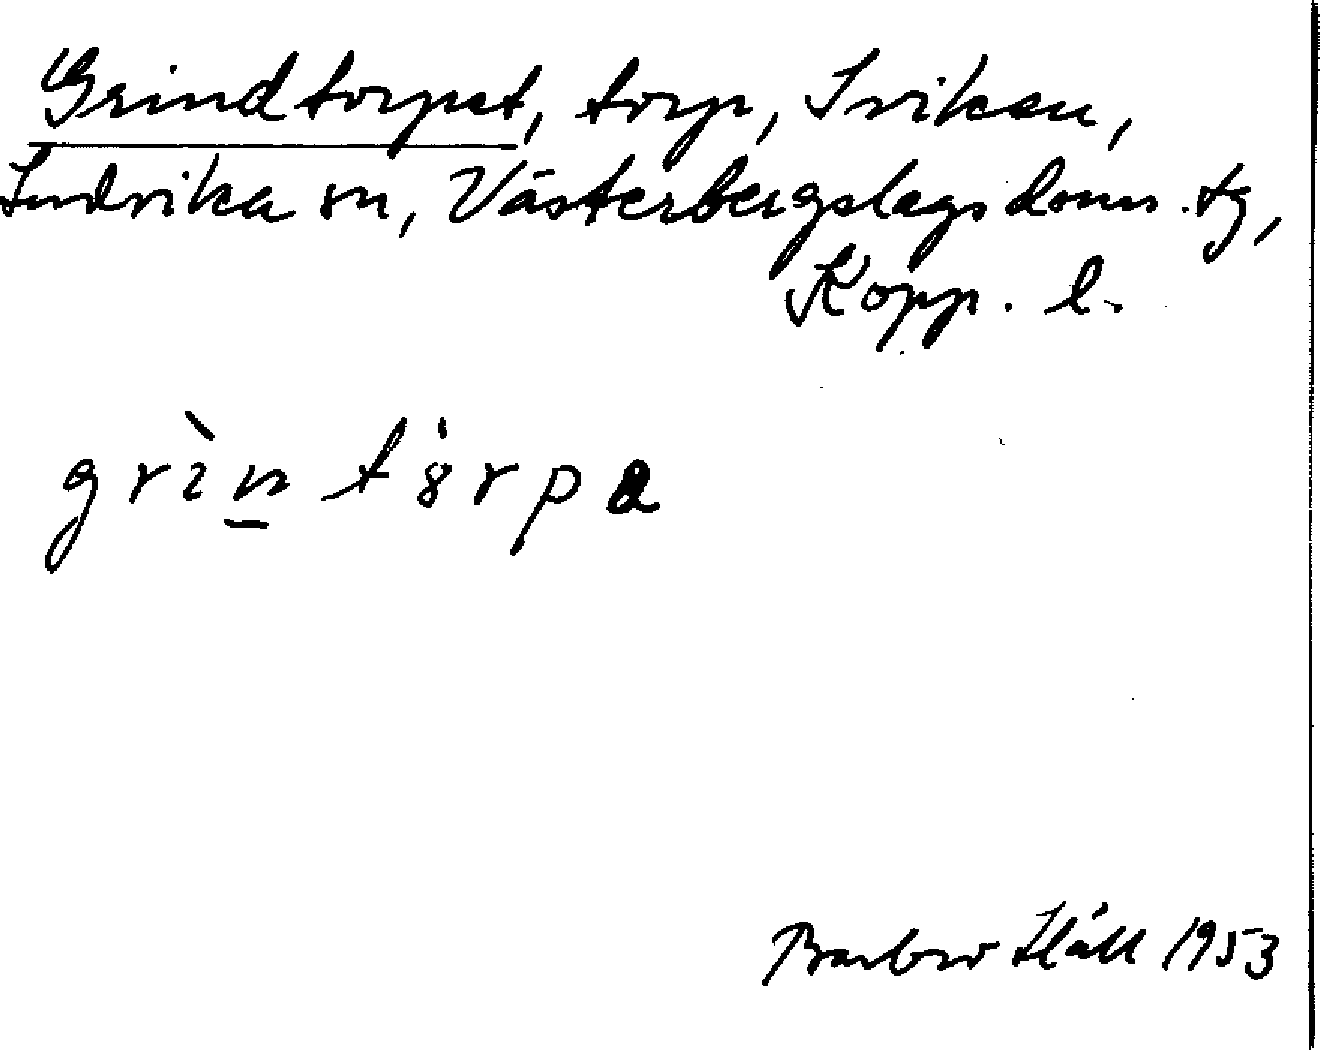 Grindtorpet, torp, Iviken,
Ludvika sn, Västerbergslags doms. tg,
Kopp. l.
grìntȯrpa
Barbro Häll 1953